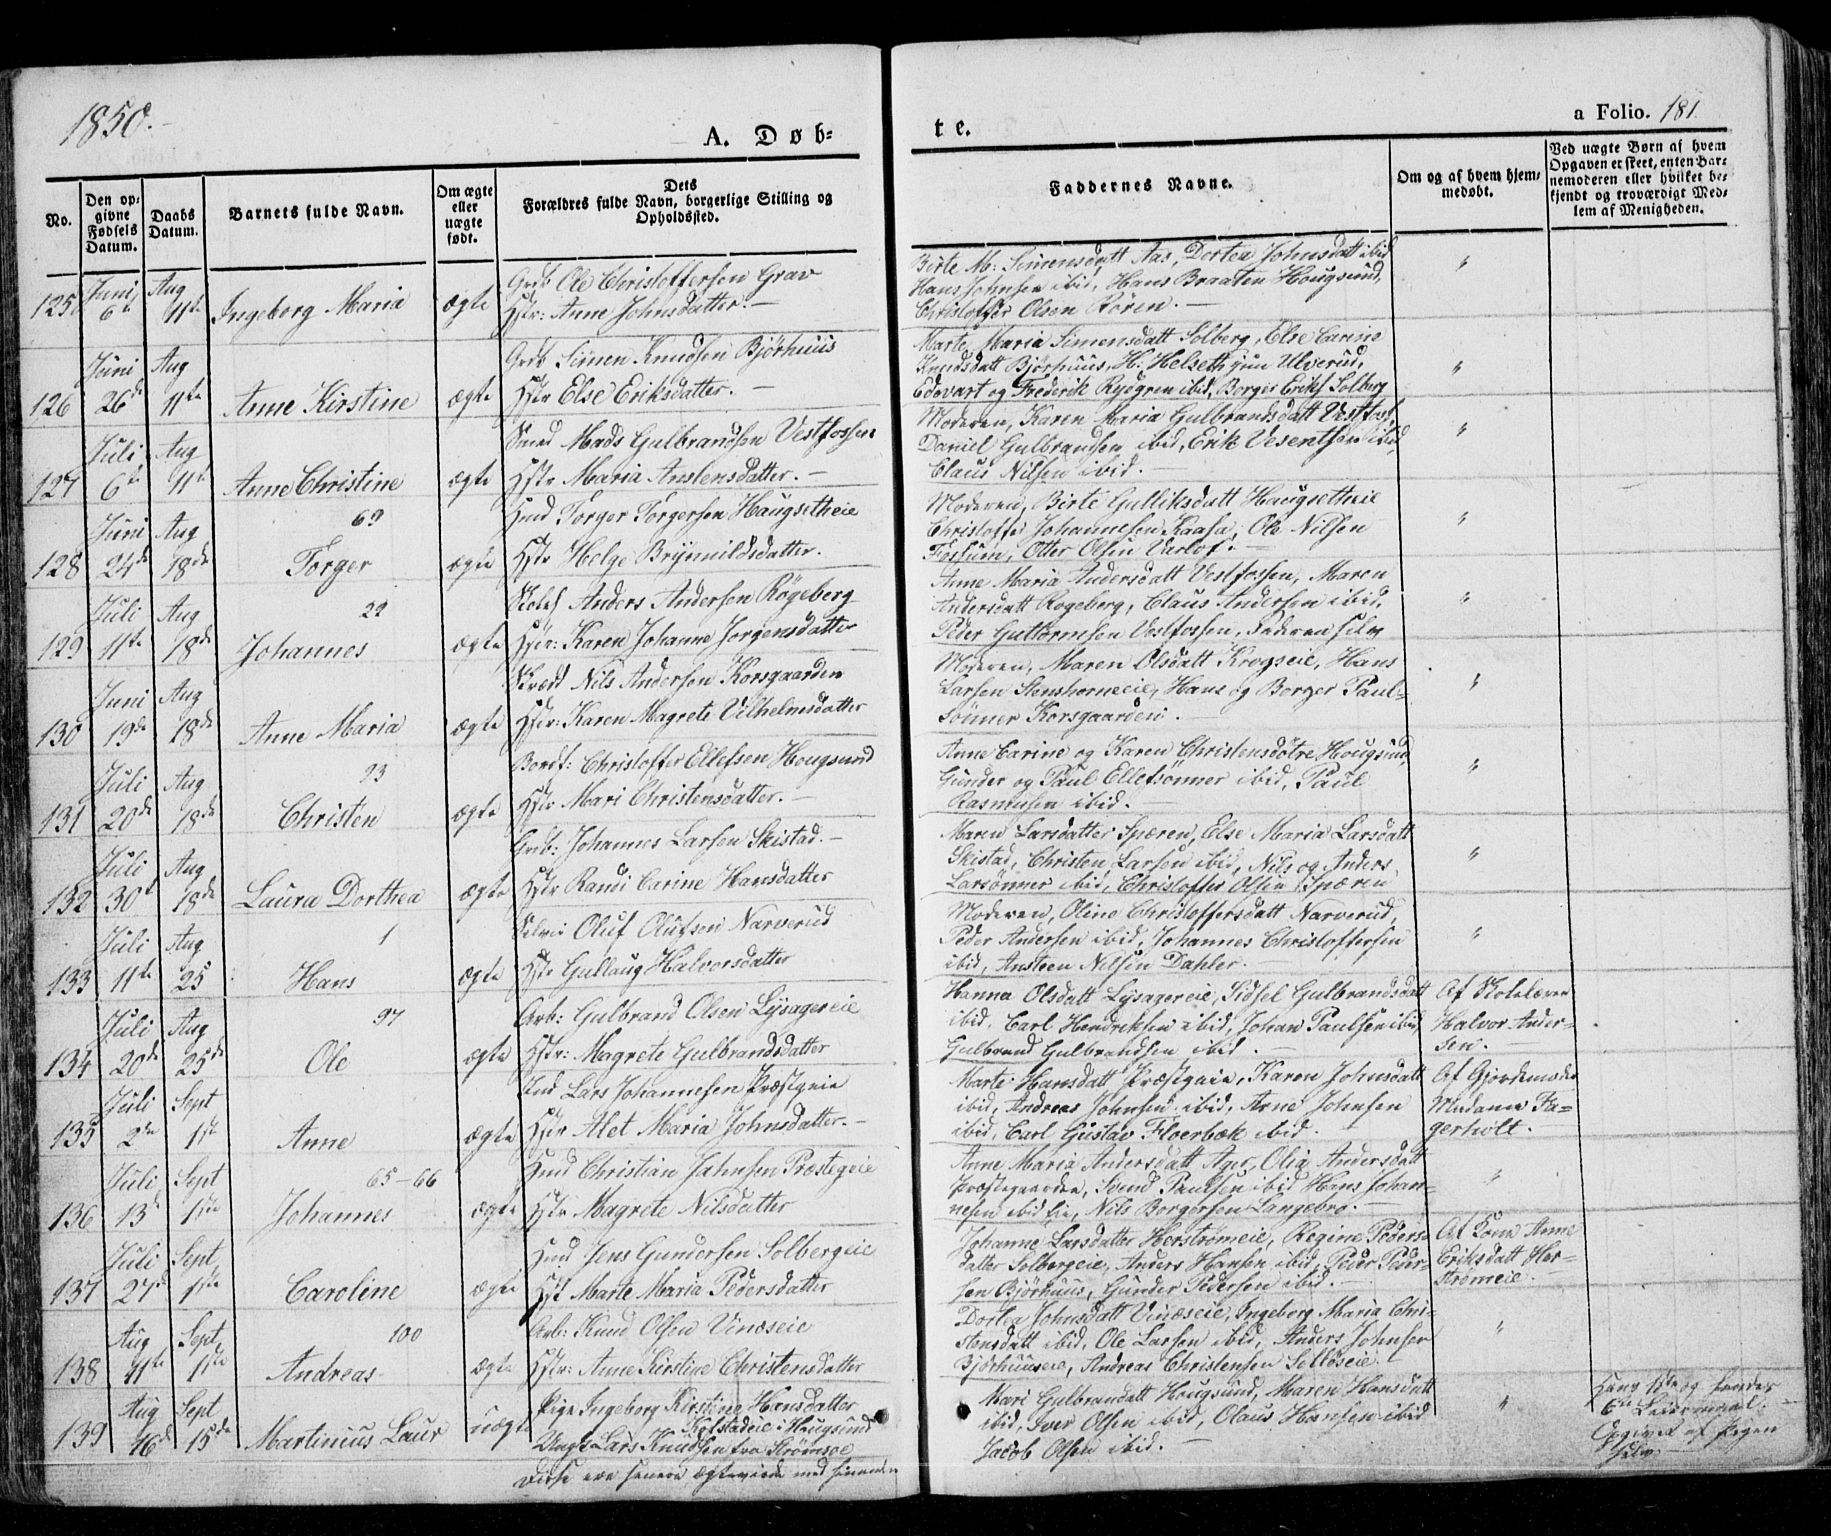 1850.
A. Døb-
te.
a Folio. 181.
No.
Den op-
givne
Fødsels
Datum.
Daabs
Datum.
Barnets fulde Navn.
Om ægte
eller
uægte
født.
Dets
Forældres fulde Navn, borgerlige Stilling og
Opholdssted.
Faddernes Navne.
Om og af hvem hjem-
medøbt.
Ved uægte Børn af hvem
Opgaven er skeet, enten Bar-
nemoderen eller hvilket be-
kjendt og troværdigt Med-
lem af Menigheden.
125 Juni 6te Aug 11te Ingeborg Maria ægte
Grdb Ole Christoffersen Grav
Hstr: Anne Johnsdatter. —
Birte M: Simensdatt Aas, Dortea Johnsdatt ibid
Hans Johnsen ibid, Hans Braaten Hougsund,
Christoffer Olsen Røren. —
"
126 Juni 26de Aug 11te Anne Kirstine ægte
Grdb Simen Knudsen Bjørhuus
Hstr Else Eriksdatter. —
Marte Maria Simensdatt Solberg, Else Carine
Knudsdatt Bjørhuus, H: Helseth jun Ulverud,
Edevart og Frederik Rydgren ibid, Borger Eriks Solberg
"
127 Juli 6te Aug 11te Anne Christine ægte
Mads Gulbrandsen Vestfossen
Hstr Maria Anstensdatter. —
Moderen, Karen Maria Gulbrandsdatt Vestfoss,
Daniel Gulbrandsen ibid, Erik Vesentsen ibid,
Claus Nilsen ibid. —
"
69
128 Juni 24de Aug 18de Torger ægte
Hmd Torger Torgersen Haugsetheie
Hstr Helge Brynmildsdatter.
Moderen, Birte Gulliksdatt Haugsetheie
Christoffer Johannesen Kaasa, Ole Nilsen
Fossum, Otter Olsen Varlo. —
"
22
129 Juli 11te Aug 18de Johannes ægte
Anders Andersen Røgeberg
Hstr: Karen Johanne Jorgensdatter
Anne Maria Andersdatt Vestfossen, Maren
Andersdatt Rogeberg, Claus Andersen ibid,
Peder Guttormsen Vestfossen, Faderen selv
"
130 Juni 19de Aug 18de Anne Maria ægte
Skrædd Nils Andersen Korsgaarden
Hstr: Karen Magrete Vilhelmsdatter
Moderen, Maren Olsdatt Krogseie, Hans
Larsen Stenshorneeie, Hans og Borger Paul-
sønner Korsgaarden. —
"
93
131 Juli 20de Aug 18de Christen ægte
Bordf: Christoffer Ellefsen Hougsund
Hstr Mari Christensdatter. —
Anne Carine og Karen Christensdøtre Hougsund
Gunder og Paul Ellefsønner ibid, Paul
Rasmusen ibid. —
"
132 Juli 30te Aug 18de Laura Dorthea ægte
Grdb: Johannes Larsen Skistad. —
Hstr Randi Carine Hansdatter
Maren Larsdatter Spæren, Else Maria Larsdatt
Skistad, Christen Larsen ibid, Nils og Anders
Larsønner ibid, Christoffer Olsen Spæren
"
1
133 Juli 11te Aug 25 Hans ægte
Selvei Oluf Olufsen Narverud
Hstr Gullaug Halvorsdatter
Moderen, Oline Christoffersdatt Narverud,
Peder Andersen ibid, Johannes Christoffersen
ibid, Ansteen Nilsen Dahler. —
"
97
134 Juli 20de Aug 25de Ole ægte
Arb: Gulbrand Olsen Lysagereie
Hstr: Magrete Gulbrandsdatter
Hanna Olsdatt Lysagereie, Sidsel Gulbrandsdatt
ibid, Carl Hendriksen ibid, Johan Paulsen ibid
Gulbrand Gulbrandsen ibid. —
Af Skolelæren
Halvor Ander-
sen. —
135 Juli 2den Sept 1ste Anne ægte
Lars Johannesen Præstgeie
Hstr Alet Maria Johnsdatter. —
Marte Hansdatt Præstgeie, Karen Johnsdatt
ibid, Andreas Johnsen ibid, Arne Johnsen
ibid, Carl Gustav Floerbæk ibid.
Af Gjordemoder
Madame Fa-
gerholt.
65-66
136 Juli 13de Sept 1ste Johannes ægte
Hmd Christian Jahnsen Præstegeie
Hstr Magrete Nilsdatter
Anne Maria Andersdatt Ager, Olia Andersdatt
Præstegaarden, Svend Paulsen ibid Hans Johan-
nesen ibid eie, Nils Borgersen Langebro. —
"
137 Juli 27de Sept 1ste Caroline ægte
Hmd Jens Gundersen Solbergeie
Hst Marte Maria Pedersdatter
Johanne Larsdatter Herstrømeie, Regine Peders-
datter Solbergeie, Anders Hansen ibid, Peder Peder-
sen Bjørhuus, Gunder Pedersen ibid. —
Af Kone Anne
Eriksdatt Her-
strømeie.
100
138 Aug 11te Sept 1ste Andreas ægte
Arb: Knud Olsen Vinæseie
Hstr: Anne Kirstine Christensdatter
Dortea Johnsdatt Vinæseie, Ingeborg Maria Chri-
stensdatt ibid, Ole Larsen ibid, Anders Johnsen
Bjørhuuseie, Andreas Christensen Selløseie.
"
139 Aug 16de Sept 15de Martinius Laur uægte
Pige Ingeborg Kirstine Hansdatter
Kolstadeie i Hougsund
Ungk Lars Knudsen fra Strømsøe
Disse ere senere ægteviede med hinanden
Mari Gulbrandatt Hougsund, Maren Hansdatt
ibid, Iver Olsen ibid, Olaus Hansen ibid
Jacob Olsen ibid. —
"
Hans 1ste og hendes
Leiermaal. —
Opgivet af Pigen
selv. —